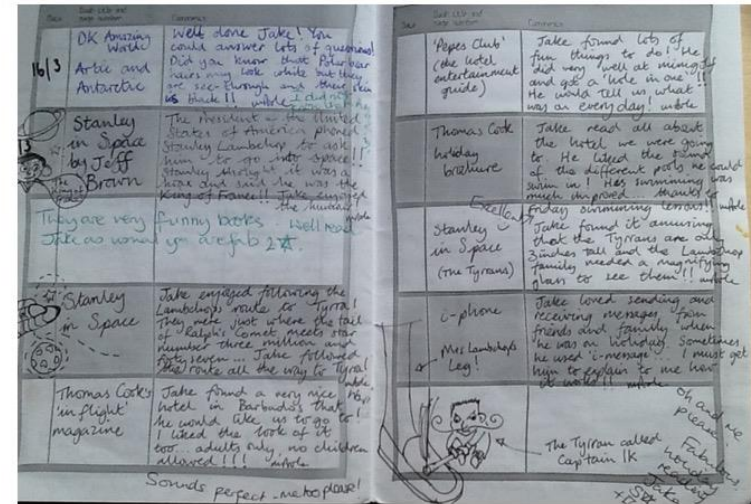 Date
Book title and
page number
Comments
16/3
DK Amazing
World
Artic and
Antarctic
Well done Jake! You
could answer lots of questions!
Did you know that Polar bear
hairs may look white but they
are see-through and their skin
is black!!
I did not
Stanley
in Space
by Jeff
Brown
The King of France
The President of the United
States of America phoned
Stanley Lambchop to ask
him to go into space!
Stanley thought it was a
hoax and said he was the
King of France!! Jake enjoyed
the humour
They are very funny books. Well read
Jake as usual you are fab 2
Stanley
in Space
Jake enjoyed following the
Lambchops route to Tyrra!
They were just where the tail
of Ralph's Comet meets star
number three million and
forty seven... Jake followed
the route all the way to Tyrra!
Thomas Cook's
'in flight'
magazine
Jake found a very nice
hotel in Barbados that
he would like us to go to!
I liked the look of it
too.. adults only, no children
allowed!!!
Sounds perfect - me too please!
Date
Book title and
page number
Comments
'Pepes Club'
(the hotel
entertainment
guide)
Jake found lots of
fun things to do! He
did very well at mini golf
and got a 'hole in one'!!
He would tell us what
was on every day!
Thomas Cook
holiday
brochure
Jake read all about
the hotel we were going
to. He liked the sound
of the different pools he could
swim in! His swimming was
much improved.. thanks to
Friday swimming lessons!!
Excellent
Stanley
in Space
(The Tyrrans)
Jake found it amusing
that the Tyrrans are only
3 inches tall and the Lambchop
family needed a magnifying
glass to see them!!
i-phone
Jake loved sending and
receiving messages from
friends and family when
he was on holiday. Sometimes
he used 'i-message'... I must get
him to explain to me how
it works!!
Mrs Lambchop's
Leg!
oh and me
please!
The Tyrran called
Captain Ik
Fabulous
holiday
reading
Jake